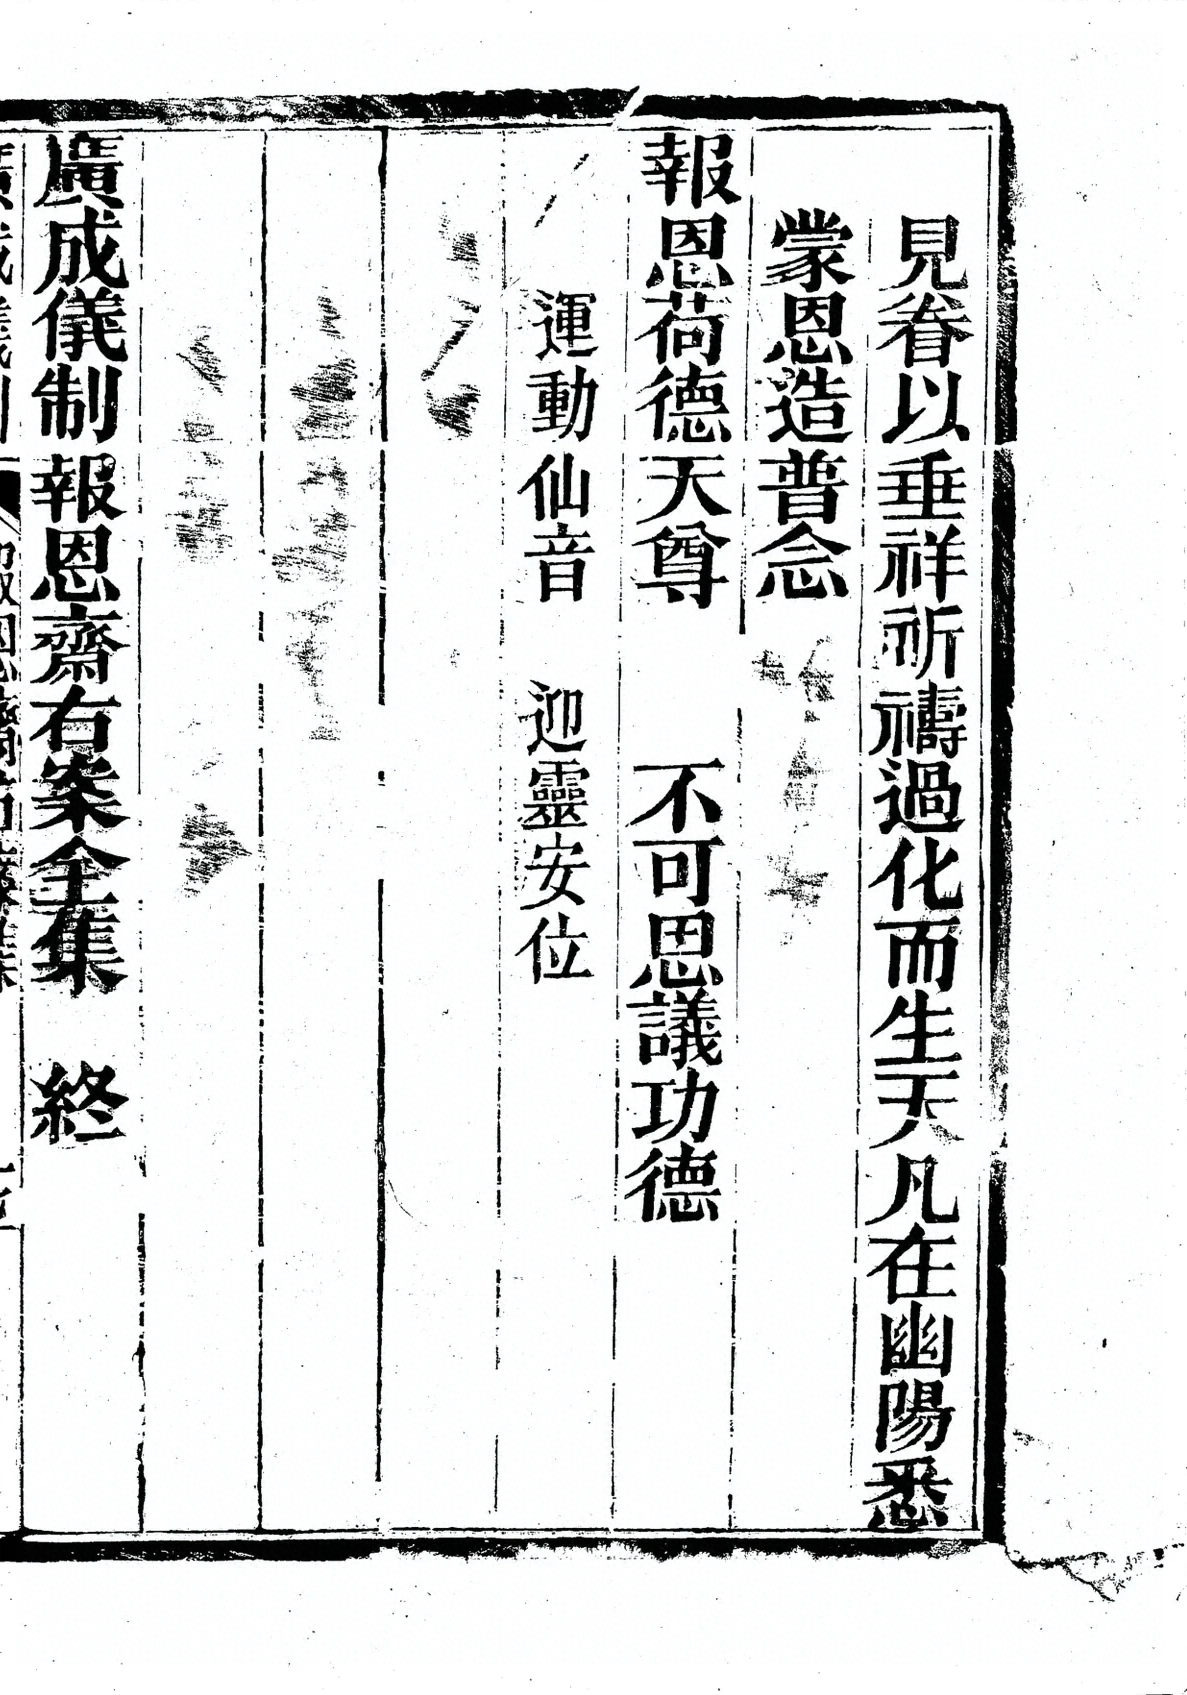 見眷以垂祥祈禱過化而生天凡在幽陽悉
蒙恩造普念
報恩荷德天尊　不可思議功德
運動仙音　迎靈安位
廣成儀制報恩齋右案全集　終